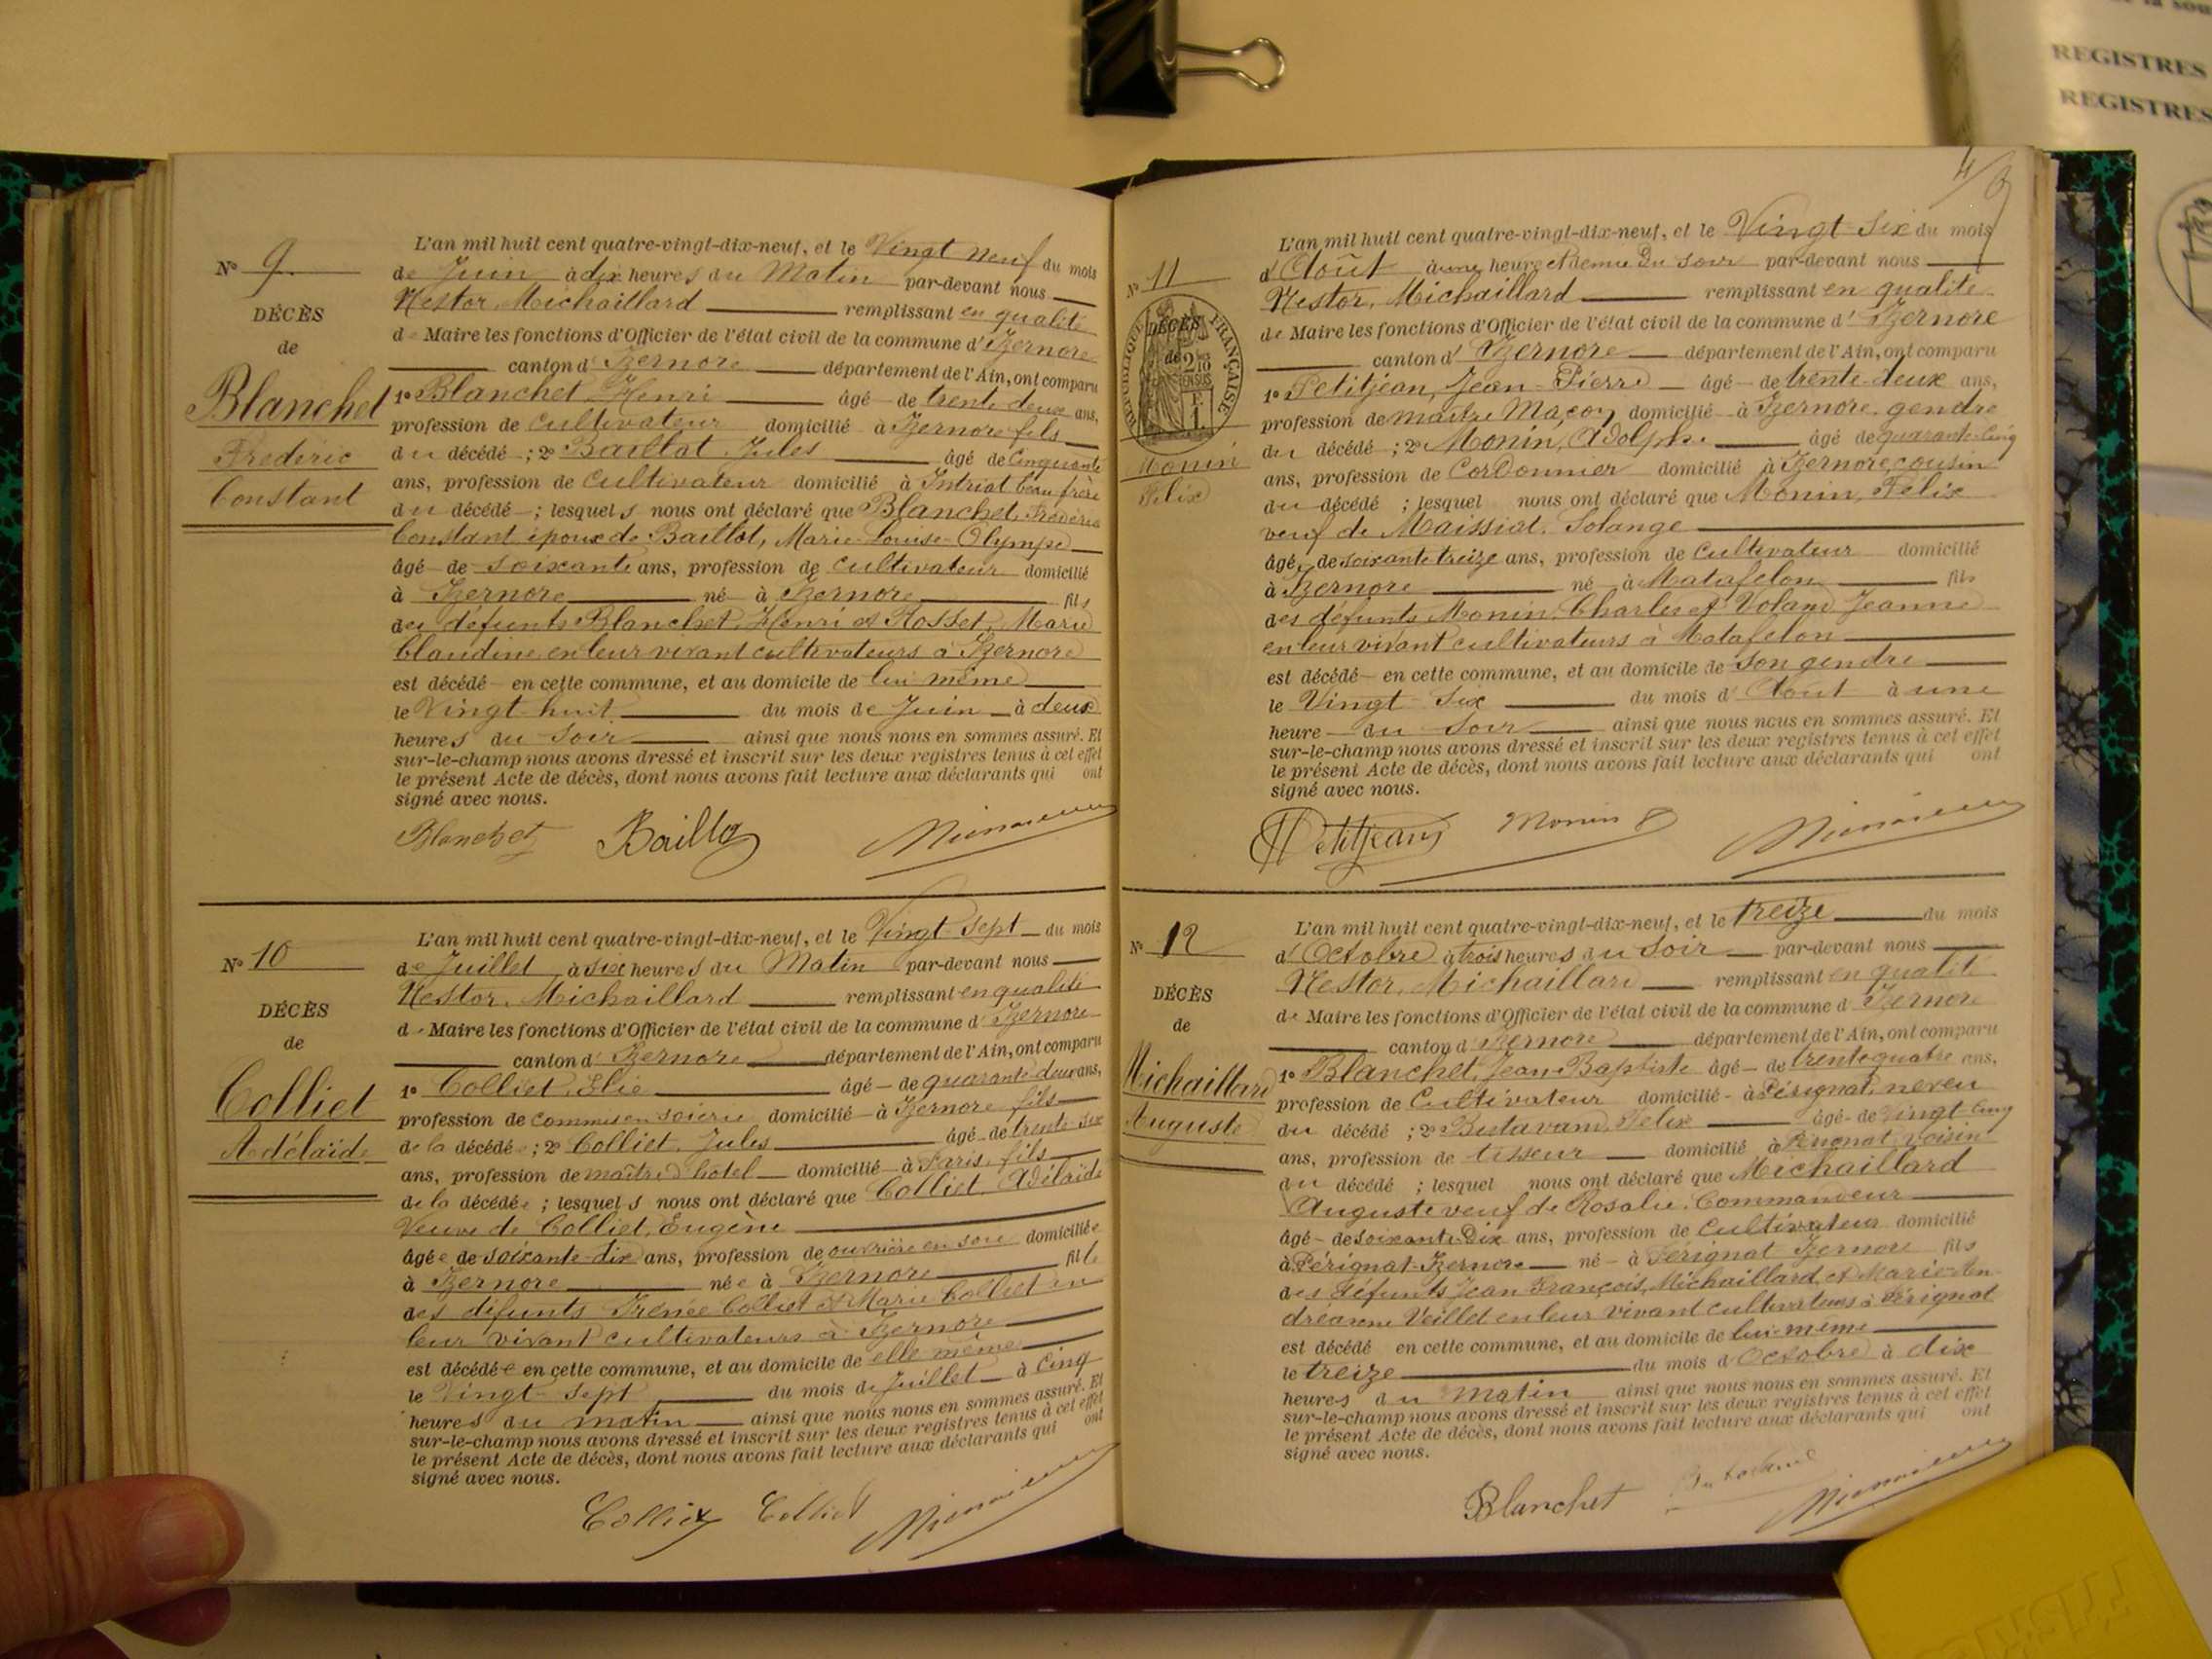 N° 9.
DÉCÈS
de
Blanchet
Frédéric
Constant
L'an mil huit cent quatre-vingt-dix-neuf, et le Vingt neuf du mois
de Juin à dix heures du Matin par-devant nous
Nestor, Michaillard remplissant en qualité
de Maire les fonctions d'Officier de l'état civil de la commune d'Izernore
canton d'Izernore département de l'Ain, ont comparu
1° Blanchet, Henri âgé de trente deux ans,
profession de Cultivateur domicilié à Izernore fils
du décédé ; 2° Baillat, Jules âgé de Cinquante
ans, profession de Cultivateur domicilié à Intriat beau frère
du décédé ; lesquels nous ont déclaré que Blanchet, Frédéric
Constant époux de Baillat, Marie-Louise-Olympe
âgé de soixante ans, profession de cultivateur domicilié
à Izernore né à Izernore fils
des défunts Blanchet, Henri et Rosset, Marie
Claudine en leur vivant cultivateurs à Izernore
est décédé en cette commune, et au domicile de lui même
le Vingt huit du mois de Juin à deux
heures du soir ainsi que nous nous en sommes assuré. Et
sur-le-champ nous avons dressé et inscrit sur les deux registres tenus à cet effet
le présent Acte de décès, dont nous avons fait lecture aux déclarants qui ont
signé avec nous.
Blanchet Baillat
N° 10
DÉCÈS
de
Colliet
Adélaïde
L'an mil huit cent quatre-vingt-dix-neuf, et le Vingt-Sept du mois
de Juillet à six heures du Matin par-devant nous
Nestor, Michaillard remplissant en qualité
de Maire les fonctions d'Officier de l'état civil de la commune d'Izernore
canton d'Izernore département de l'Ain, ont comparu
1° Colliet, Elie âgé de quarante-deux ans,
profession de commis en soierie domicilié à Izernore fils
de la décédée ; 2° Colliet, Jules âgé de trente-six
ans, profession de maître d'hotel domicilié à Paris, fils
de la décédée ; lesquels nous ont déclaré que Colliet, Adélaïde
Veuve de Colliet, Eugène
âgée de soixante-dix ans, profession de ouvrière en soie domiciliée
à Izernore née à Izernore fille
des défunts Irénée Colliet et Marie Colliet en
leur vivant cultivateurs à Izernore
est décédée en cette commune, et au domicile de elle même
le Vingt-sept du mois de Juillet à Cinq
heures du matin ainsi que nous nous en sommes assuré. Et
sur-le-champ nous avons dressé et inscrit sur les deux registres tenus à cet effet
le présent Acte de décès, dont nous avons fait lecture aux déclarants qui ont
signé avec nous.
Colliet Colliet
N° 11
DÉCÈS
de
RÉPUBLIQUE FRANÇAISE
Monin
Félix
L'an mil huit cent quatre-vingt-dix-neuf, et le Vingt-Six du mois
d'Août à une heure et demie du soir par-devant nous
Nestor, Michaillard remplissant en qualité
de Maire les fonctions d'Officier de l'état civil de la commune d'Izernore
canton d'Izernore département de l'Ain, ont comparu
1° Petitjean, Jean-Pierre âgé de trente-deux ans,
profession de maître Maçon domicilié à Izernore, gendre
du décédé ; 2° Monin, Adolphe âgé de quarante-cinq
ans, profession de Cordonnier domicilié à Izernore, cousin
du décédé ; lesquel nous ont déclaré que Monin, Félix
veuf de Maissiat, Solange
âgé de soixante treize ans, profession de cultivateur domicilié
à Izernore né à Matafelon fils
des défunts Monin, Charles et Voland Jeanne
en leur vivant cultivateurs à Matafelon
est décédé en cette commune, et au domicile de son gendre
le Vingt-Six du mois d'Août à une
heure du soir ainsi que nous nous en sommes assuré. Et
sur-le-champ nous avons dressé et inscrit sur les deux registres tenus à cet effet
le présent Acte de décès, dont nous avons fait lecture aux déclarants qui ont
signé avec nous.
Petitjean Monin
N° 12
DÉCÈS
de
Michaillard
Auguste
L'an mil huit cent quatre-vingt-dix-neuf, et le treize du mois
d'Octobre à trois heures du soir par-devant nous
Nestor, Michaillard remplissant en qualité
de Maire les fonctions d'Officier de l'état civil de la commune d'Izernore
canton d'Izernore département de l'Ain, ont comparu
1° Blanchet, Jean-Baptiste âgé de trente quatre ans,
profession de Cultivateur domicilié à Pérignat, neveu
du décédé ; 2° Butavand, Félix âgé de Vingt-cinq
ans, profession de tisseur domicilié à Pérignat, voisin
du décédé ; lesquel nous ont déclaré que Michaillard
Auguste veuf de Rosalie, Commandeur
âgé de soixante-Dix ans, profession de cultivateur domicilié
à Pérignat-Izernore né à Pérignat Izernore fils
des défunts Jean François, Michaillard, et Marie An
dréanne Veillet en leur vivant cultivateurs à Pérignat
est décédé en cette commune, et au domicile de lui-même
le treize du mois d'Octobre à dix
heures du matin ainsi que nous nous en sommes assuré. Et
sur-le-champ nous avons dressé et inscrit sur les deux registres tenus à cet effet
le présent Acte de décès, dont nous avons fait lecture aux déclarants qui ont
signé avec nous.
Blanchet Butavand
REGISTRES
REGISTRES